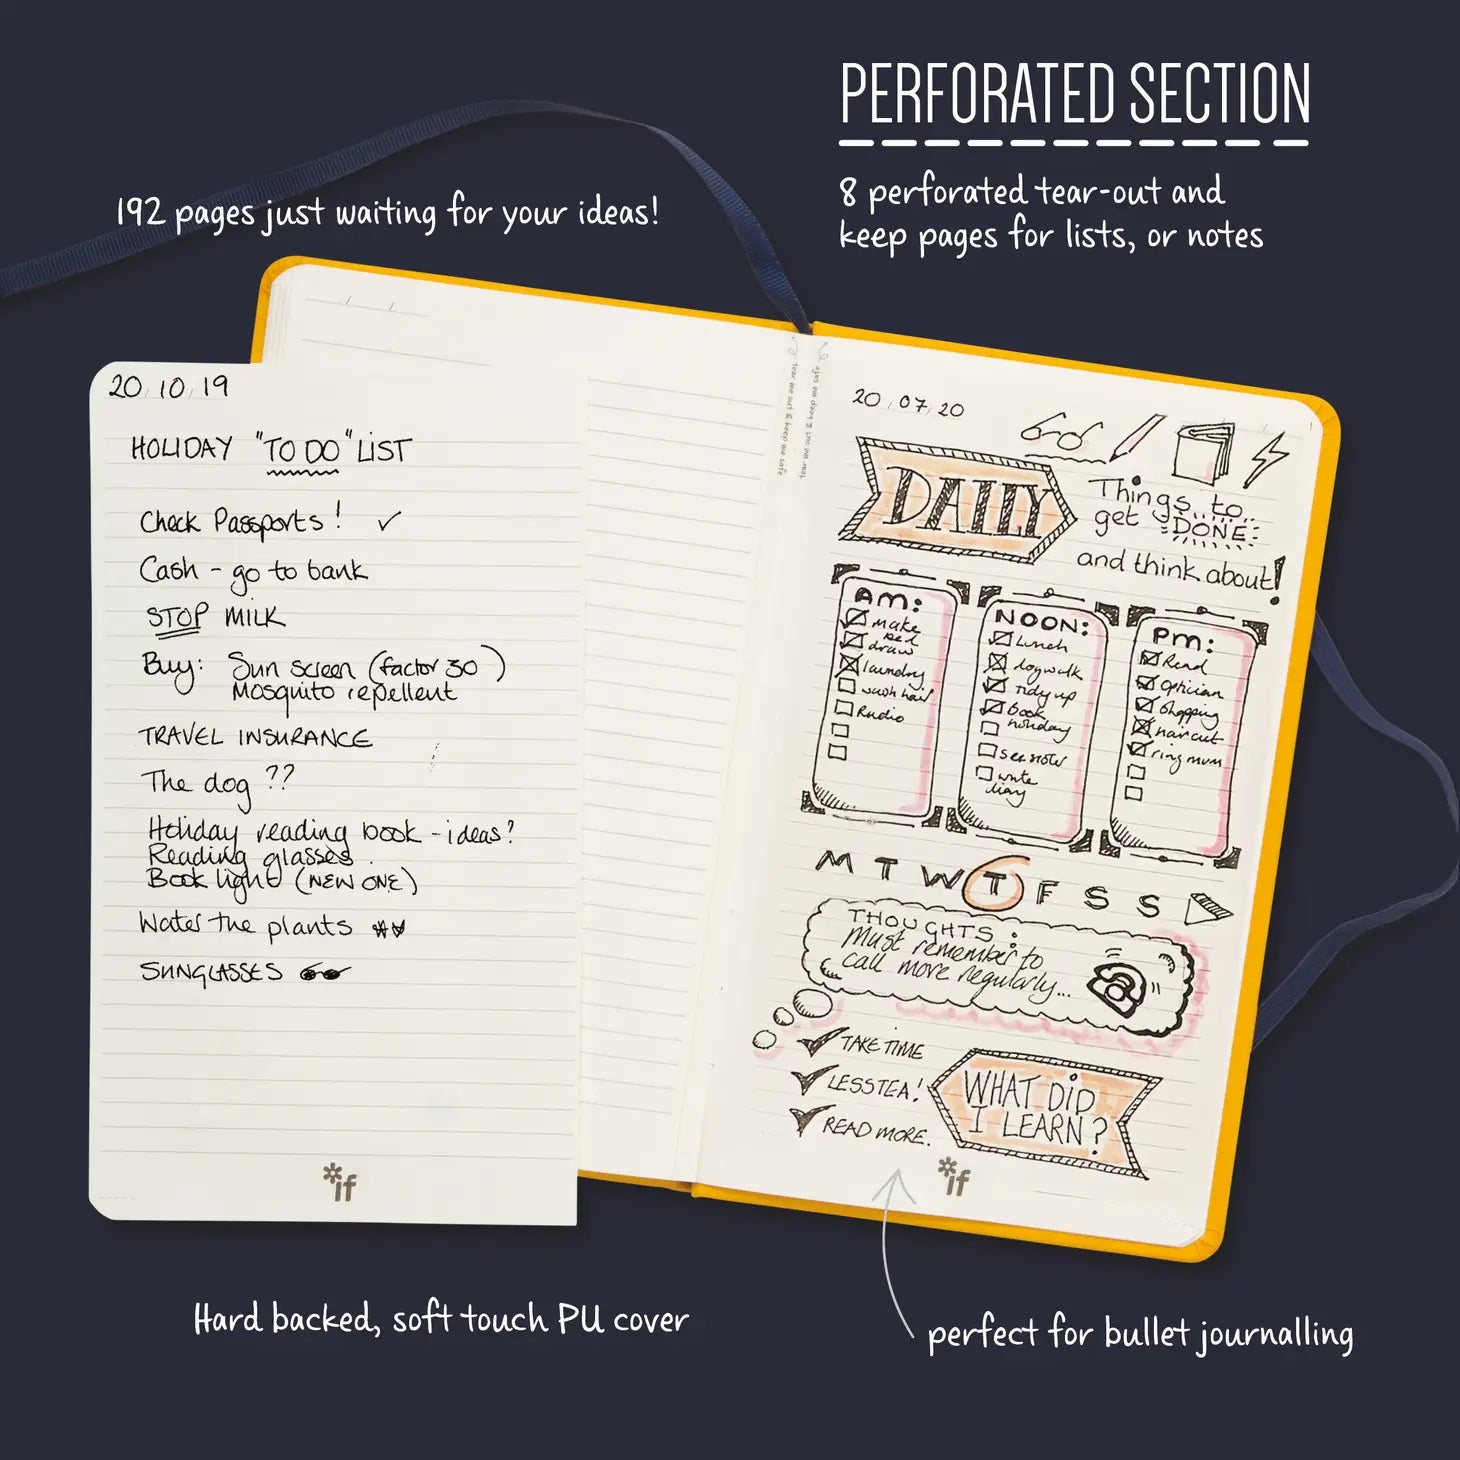 PERFORATED SECTION
8 perforated tear-out and
keep pages for lists, or notes
192 pages just waiting for your ideas!
20, 10, 19
HOLIDAY "TO DO" LIST
Check Passports! ✓
Cash - go to bank
STOP MILK
Buy: Sun screen (factor 30)
Mosquito repellent
TRAVEL INSURANCE
The dog ??
Holiday reading book - ideas?
Reading glasses.
Book light (NEW ONE)
Water the plants
SUNGLASSES
*if
tear me out & keep me safe
tear me out & keep me safe
20, 07, 20
DAILY
Things to
get DONE
and think about!
AM:
make
bed
draw
laundry
wash hair
Radio
NOON:
Lunch
dog walk
tidy up
book
holiday
see sister
write
diary
PM:
Read
Optician
Shopping
haircut
ring mum
M T W T F S S
THOUGHTS:
Must remember to
call more regularly...
TAKE TIME
LESS TEA!
READ MORE.
WHAT DID
I LEARN?
*if
Hard backed, soft touch PU cover
perfect for bullet journalling